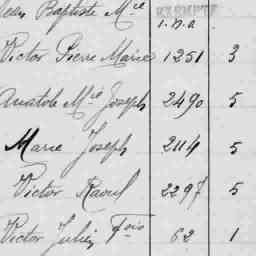 Jean Baptiste Mie
EXEMPTE
i.n.a
Victor Pierre Marie 1251 3
Anatole Mie Joseph 2490 5
Marie Joseph 2114 5
Victor Raoul 2297 5
Victor Julien Fois 62 1